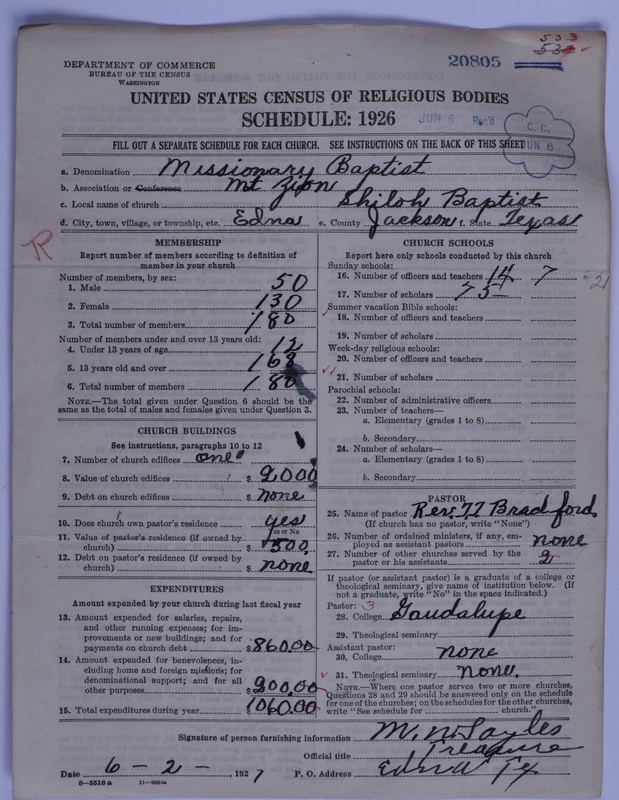 533
532
20805
DEPARTMENT OF COMMERCE
BUREAU OF THE CENSUS
WASHINGTON
UNITED STATES CENSUS OF RELIGIOUS BODIES
SCHEDULE: 1926
JUN 6 Rec'd
C. C.
JUN 6
FILL OUT A SEPARATE SCHEDULE FOR EACH CHURCH. SEE INSTRUCTIONS ON THE BACK OF THIS SHEET
a. Denomination Missionary Baptist
b. Association or Conference Mt Zion
c. Local name of church Shiloh Baptist
d. City, town, village, or township, etc. Edna e. County Jackson f. State Texas
R
MEMBERSHIP
Report number of members according to definition of member in your church
Number of members, by sex:
1. Male 50
2. Female 130
3. Total number of members 180
Number of members under and over 13 years old:
4. Under 13 years of age 12
5. 13 years old and over 168
6. Total number of members 180
NOTE.—The total given under Question 6 should be the same as the total of males and females given under Question 3.
CHURCH BUILDINGS
See instructions, paragraphs 10 to 12
7. Number of church edifices one
8. Value of church edifices $ 2000
9. Debt on church edifices $ none
10. Does church own pastor's residence yes
Yes or No
11. Value of pastor's residence (if owned by church) $ 500
12. Debt on pastor's residence (if owned by church) $ none
EXPENDITURES
Amount expended by your church during last fiscal year
13. Amount expended for salaries, repairs, and other running expenses; for improvements or new buildings; and for payments on church debt $ 860.00
14. Amount expended for benevolences, including home and foreign missions; for denominational support; and for all other purposes $ 200.00
15. Total expenditures during year 1060.00
CHURCH SCHOOLS
Report here only schools conducted by this church
Sunday schools:
16. Number of officers and teachers 14 7 = 21
17. Number of scholars 75
Summer vacation Bible schools:
18. Number of officers and teachers
19. Number of scholars
Week-day religious schools:
20. Number of officers and teachers
21. Number of scholars
Parochial schools:
22. Number of administrative officers
23. Number of teachers—
a. Elementary (grades 1 to 8)
b. Secondary
24. Number of scholars—
a. Elementary (grades 1 to 8)
b. Secondary
PASTOR
25. Name of pastor Rev. Bradford
(If church has no pastor, write "None")
26. Number of ordained ministers, if any, employed as assistant pastors none
27. Number of other churches served by the pastor or his assistants 2
If pastor (or assistant pastor) is a graduate of a college or theological seminary, give name of institution below. (If not a graduate, write "No" in the space indicated.)
Pastor: 3
28. College Guadalupe
29. Theological seminary
Assistant pastor:
30. College none
31. Theological seminary none.
NOTE.—Where one pastor serves two or more churches, Questions 28 and 29 should be answered only on the schedule for one of the churches; on the schedules for the other churches, write "See schedule for church."
Signature of person furnishing information M. N. Sayles
Official title Treasure
Date 6-2-, 1927 P. O. Address Edna Tx
8-5518a 11-9054a